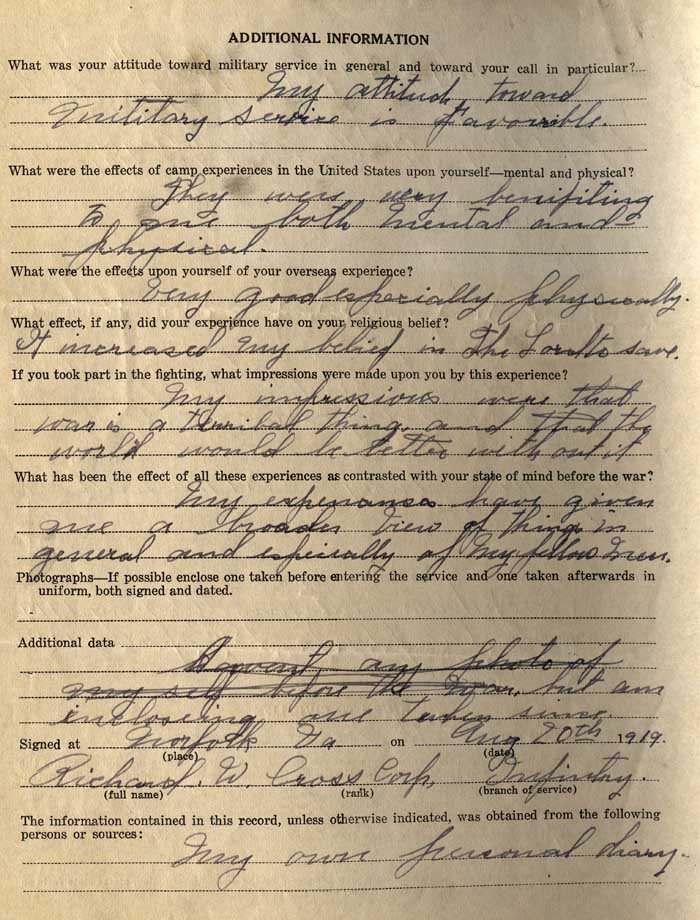 ADDITIONAL INFORMATION
What was your attitude toward military service in general and toward your call in particular?
My attitude toward
military service is favorible.
What were the effects of camp experiences in the United States upon yourself—mental and physical?
They were very benifiting
to me both mental and
physical.
What were the effects upon yourself of your overseas experience?
Very good especially physically.
What effect, if any, did your experience have on your religious belief?
It increased my belief in The Lord to save.
If you took part in the fighting, what impressions were made upon you by this experience?
My impressions were that
war is a terribal thing, and that the
world would be better with out it
What has been the effect of all these experiences as contrasted with your state of mind before the war?
My experiences have given
me a broader view of things in
general and especially of my fellow men.
Photographs—If possible enclose one taken before entering the service and one taken afterwards in
uniform, both signed and dated.
Additional data
I havent any photo of
my self before the war, but am
enclosing one taken since.
Signed at Norfolk Va on Aug 20th 1919.
(place) (date)
Richard. W. Cross Corp. Infintry.
(full name) (rank) (branch of service)
The information contained in this record, unless otherwise indicated, was obtained from the following
persons or sources:
My own personal diary.